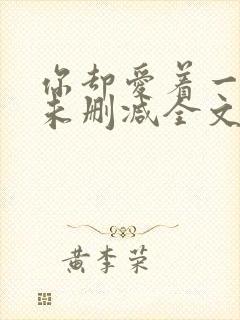 你却爱着一
未删减全文
黄李荣